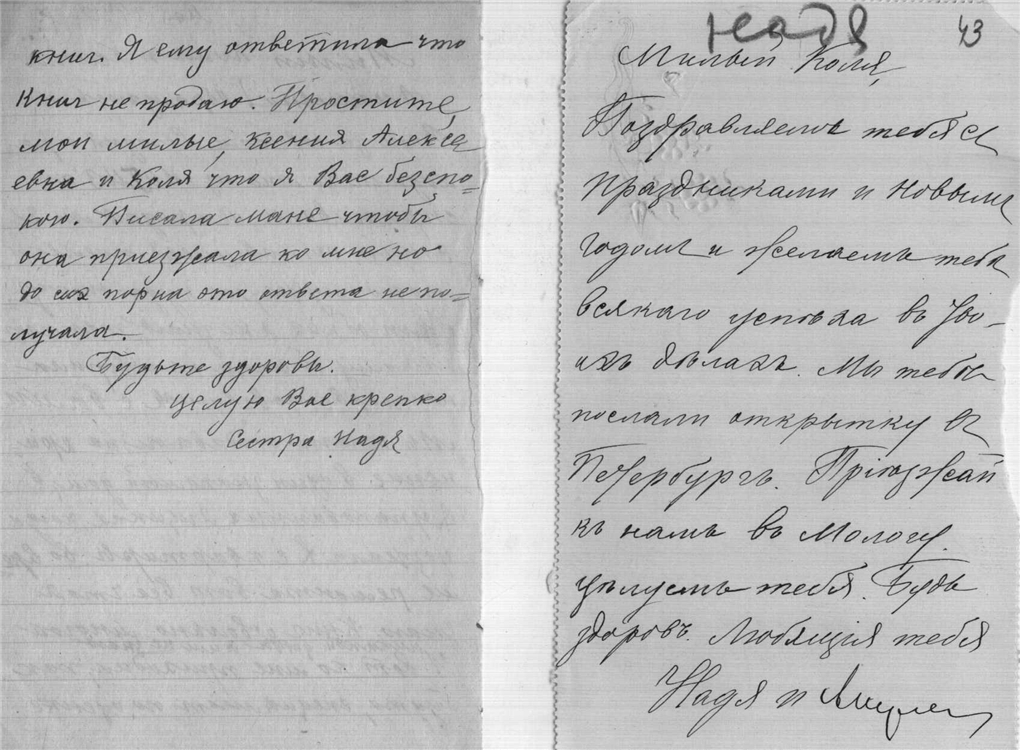 книг. Я ему ответила что
книг не продаю. Простите,
мои милые, Ксения Алексе
евна и Коля что я Вас безспо=
кою. Писала мане чтобы
она приезжала ко мне но
до сих пор на это ответа не по=
лучала.
Будьте здоровы.
Целую Вас крепко
Сестра Надя
Надя
43
Милый Коля,
Поздравляемъ тебя съ
праздниками и новымъ
годомъ и желаемъ тебѣ
всякаго успѣха въ тво-
ихъ дѣлахъ. Мы тебѣ
послали открытку въ
Петербургъ. Пріѣзжай
къ намъ въ Мологу.
Цѣлуемъ тебя. Будь
здоровъ. Любящія тебя
Надя и